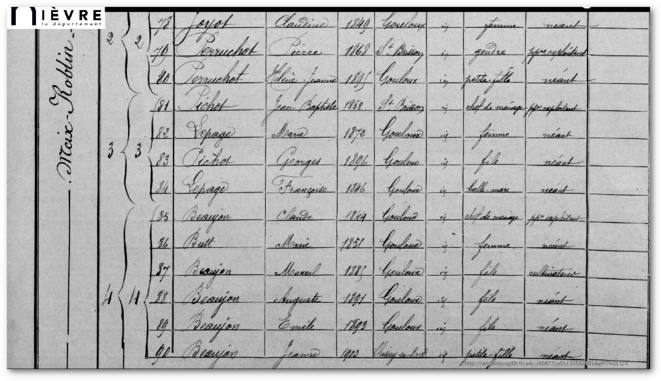 NIÈVRE
le département
Maix-Roblin
2 2 78 Joyot Claudine 1849 Gouloux id femme néant
79 Perruchot Pierre 1868 St Brisson id gendre ppre exploitant
80 Perruchot Hélène Jeanne 1895 Gouloux id petite fille néant
3 3 81 Pichot Jean Baptiste St Brisson id chef de ménage ppre exploitant
82 Lepage Marie 1872 Gouloux id femme néant
83 Pichot Georges 1896 Gouloux id fils néant
84 Lepage Françoise Gouloux id belle mère néant
4 4 85 Beaujon Claude 1849 Gouloux id chef de ménage ppre exploitant
86 Butt Marie 1851 Gouloux id femme néant
87 Beaujon Marcel 1885 Gouloux id fils cultivateur
88 Beaujon Auguste 1891 Gouloux id fils néant
89 Beaujon Emile 1893 Gouloux id fils néant
90 Beaujon Jeanne 1903 id petite fille néant